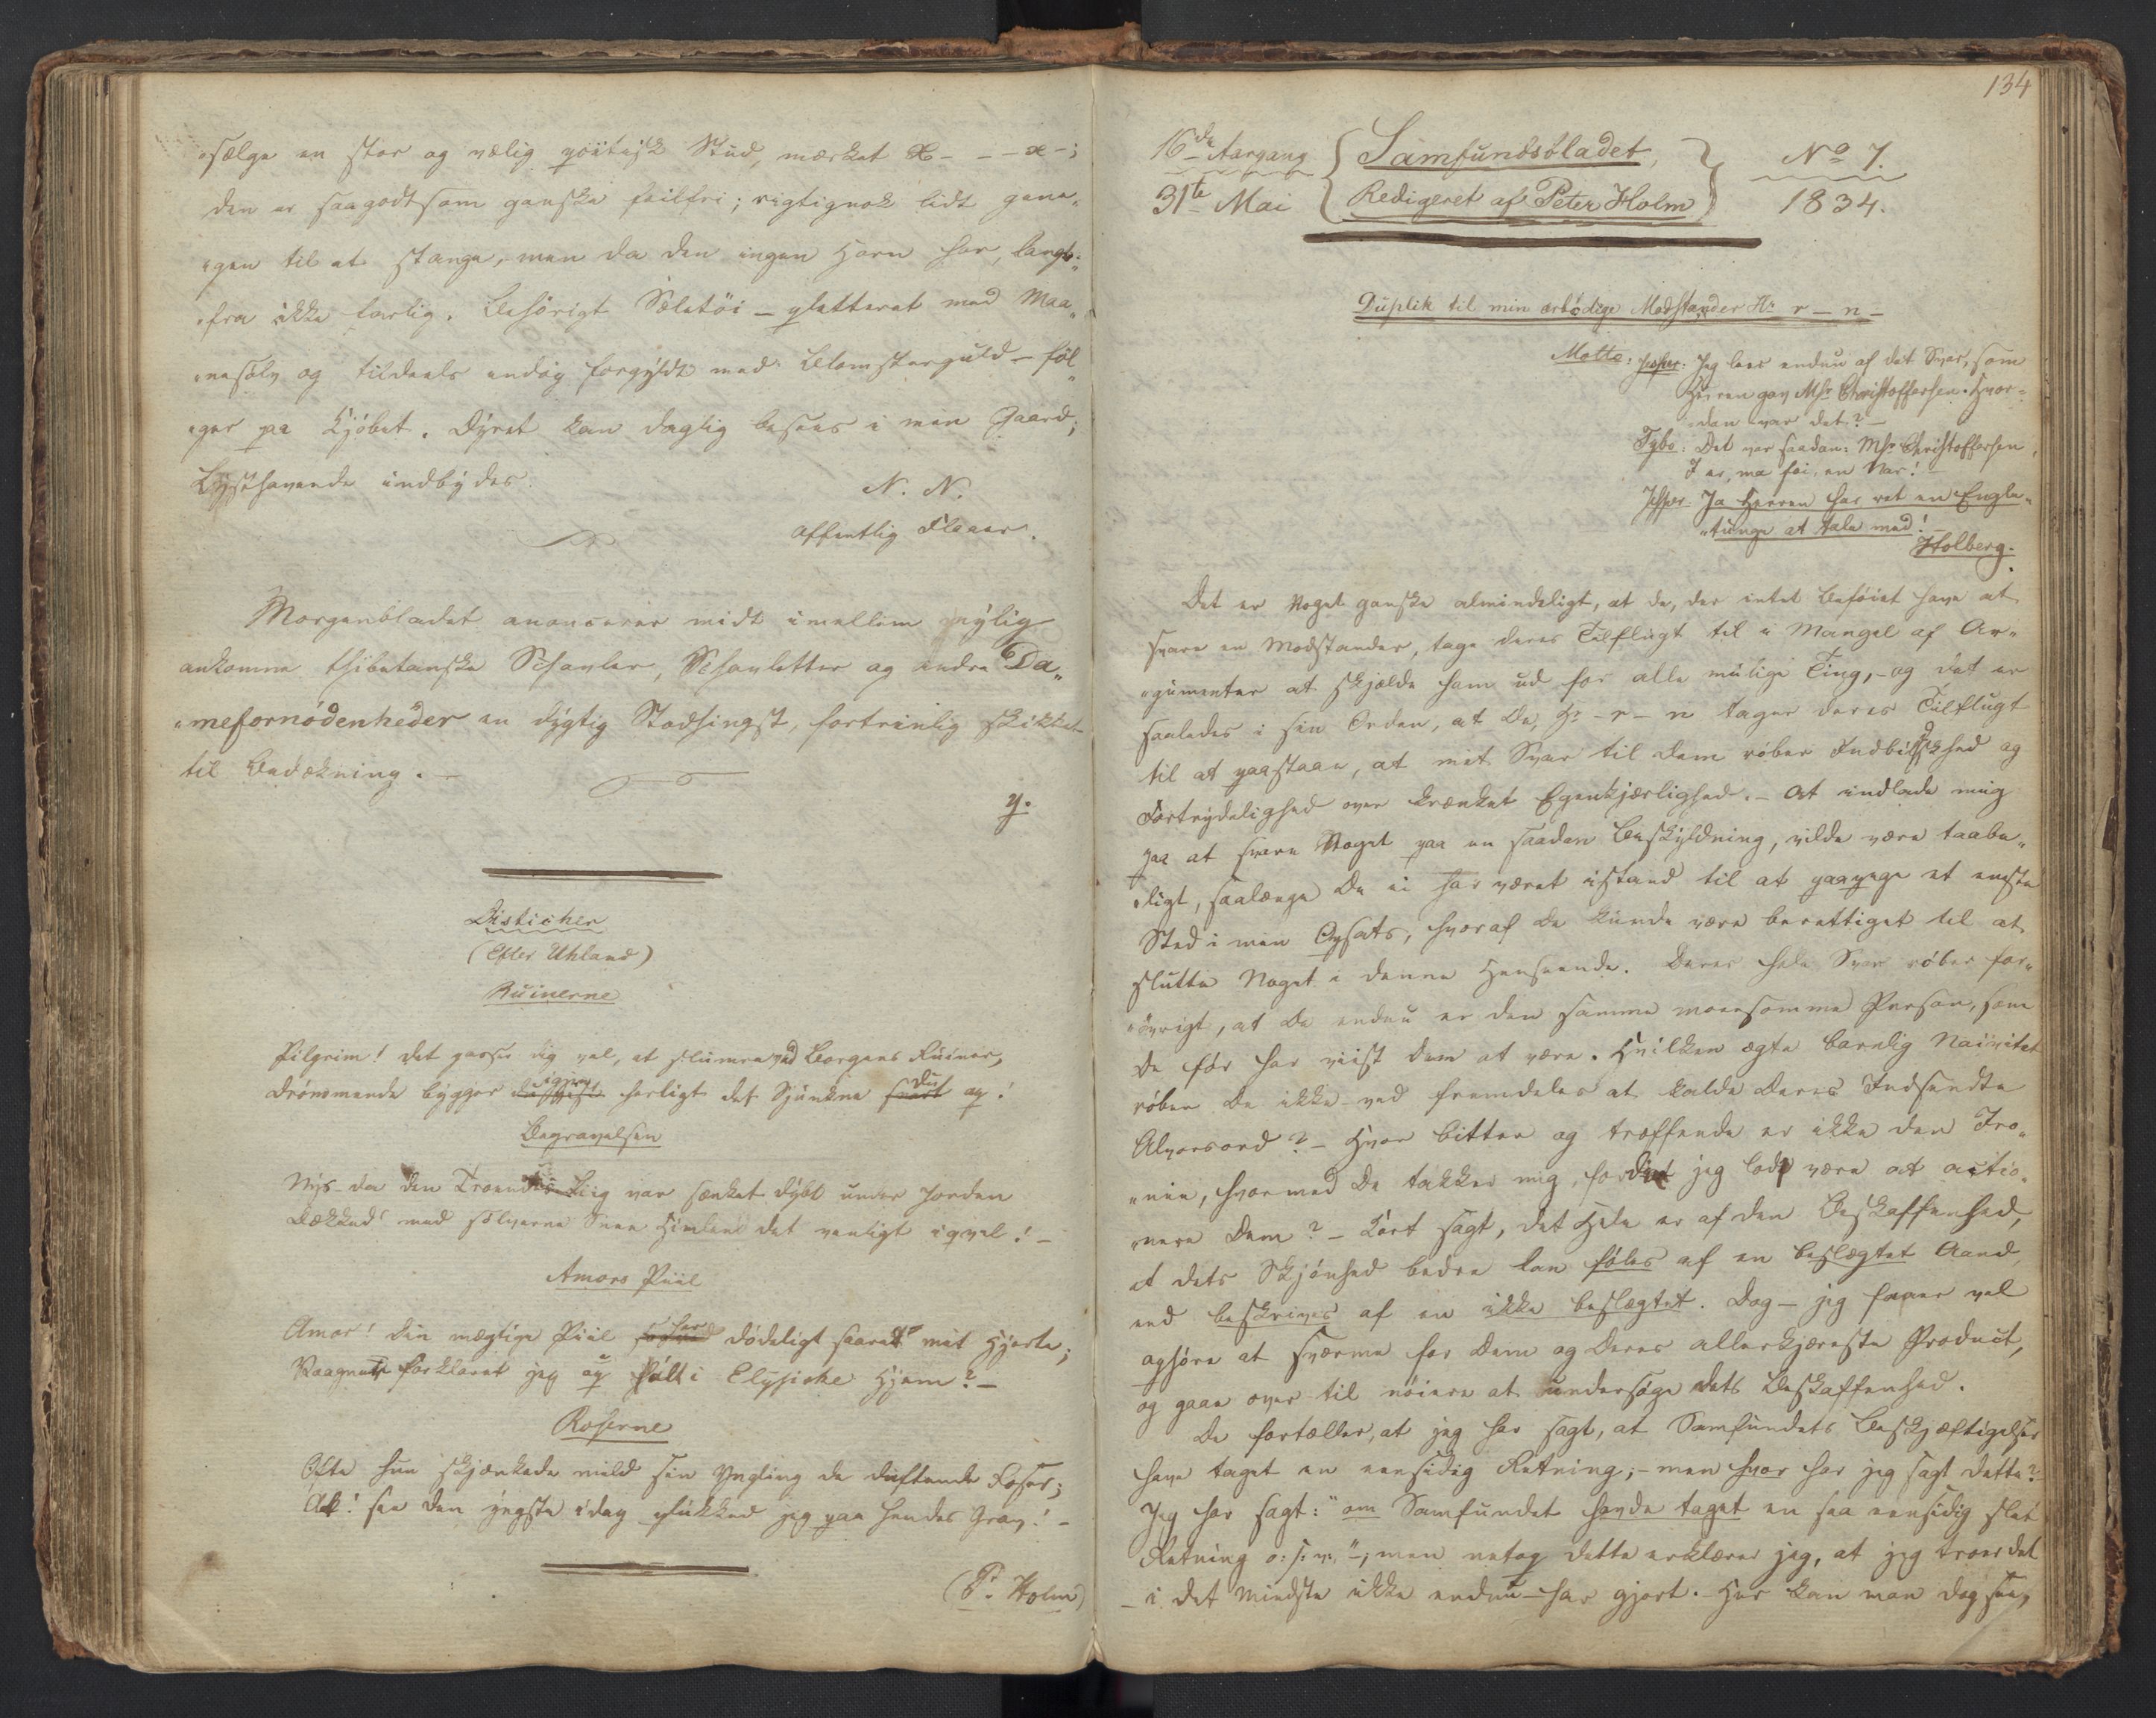 „sælge en stor og vælig poëtisk Stud, mærket X - - - x -;
den er saagodtsom ganske feilfri; rigtignok lidt gene„
„gen til at stange, men da den ingen Horn har, langt„
„fra ikke farlig. Behörigt Seletöi – pletteret med Maa„
„nesölv og tildeels endog forgyldt med Blomsterguld – föl„
„ger pa Kjöbet. Dyret kan daglig besees i min Gaard;
Lysthavende indbydes.
N. N.
offentlig Flaaer.
Morgenbladet anoncerer midt imellem nylig
ankomne thibetanske Schavler, Schavletter og andre Da„
„mefornödenheder en dygtig Stodhingst, fortrinlig skikket
til Bedækning. –
y.
Distichen
(Efter Uhland)
Ruinerne
Pilgrim! det passer dig vel, at slumre ved Borgens Ruiner,
Drömmende bygger igjen herligt det Sjunkne du op!
Begravelsen
Nys da den Troendes Liig var sænket dybt under Jorden
Dækked' med sölverne Snee Himlen det venligt iqvel! –
Amors Piil
Amor! din mægtige Piil har dödeligt saaret mit Hjerte;
Vaagnede forklaret jeg op i Elysiske Hjem? –
Roserne
Ofte hun skjænkede mild sin Yngling de duftende Roser;
Ak! see den yngste idag plukked jeg paa hendes Grav! –
(P. Holm)
134
16de Aargang { Samfundsbladet, } No 7.
31te Mai { Redigeret af Peter Holm } 1834.
Duplik til min ærbödige Modstander Hr r – n –
Motto: Jesper: Jeg leer endnu af det Svar, som
Herren gav Msr Christoffersen. Hvor„
„dan var det? –
Tybo: Det var saadan: Msr Christoffersen,
I er, ma foi, en Nar! –
Jesper: Ja Herren har ret en Engle„
„tunge at tale med! –
Holberg.
Det er Noget ganske almindeligt, at de, der intet Beföiet have at
svare en Modstander, tage deres Tilflugt til i Mangel af Ar„
„gumenter at skjælde ham ud for alle mulige Ting, – og det er
saaledes i sin Orden, at De, Hr – r – n tager deres Tilflugt
til at paastaae, at mit Svar til Dem röber Indbildskhed og
Fortrydelighed over krænket Egenkjærlighed. – At indlade mig
paa at svare Noget paa en saadan Beskyldning, vilde være taabe„
„ligt, saalænge De ei har været istand til at paapege et eneste
Sted i min Opsats, hvoraf De kunde være berettiget til at
slutte Noget i denne Henseende. Deres hele Svar röber for„
„övrigt, at De endnu er den samme moersomme Person, som
De för har viist Dem at være. Hvilken ægte barnlig Naivitet
röber De ikke ved fremdeles at kalde Deres Indsendte
Alvorsord? – Hvor bitter og træffende er ikke den Iro„
„nie, hvormed De takker mig, fordi jeg lod være at actio„
„nere Dem? – Kort sagt, det Hele er af den Beskaffenhed,
at dets Skjönhed bedre kan föles af en beslægtet Aand,
end beskrives af en ikke beslægtet. Dog – jeg faaer vel
ophöre at sværme for Dem og Deres allerkjæreste Product,
og gaae over til nöiere at undersöge dets Beskaffenhed.
De fortæller, at jeg har sagt, at Samfundets Beskjæftigelser
have taget en eensidig Retning; – men hvor har jeg sagt dette?
Jeg har sagt: "om Samfundet havde taget en saa eensidig slet
Retning o: s: v: " –; men netop dette erklærer jeg, at jeg troer det
– i det Mindste ikke endnu – har gjort. Her kan man dog see,